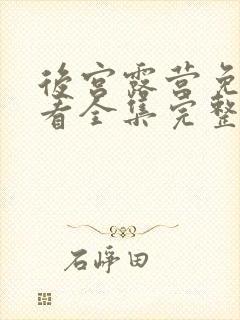 後宮露营免
看全集完整
石崢田